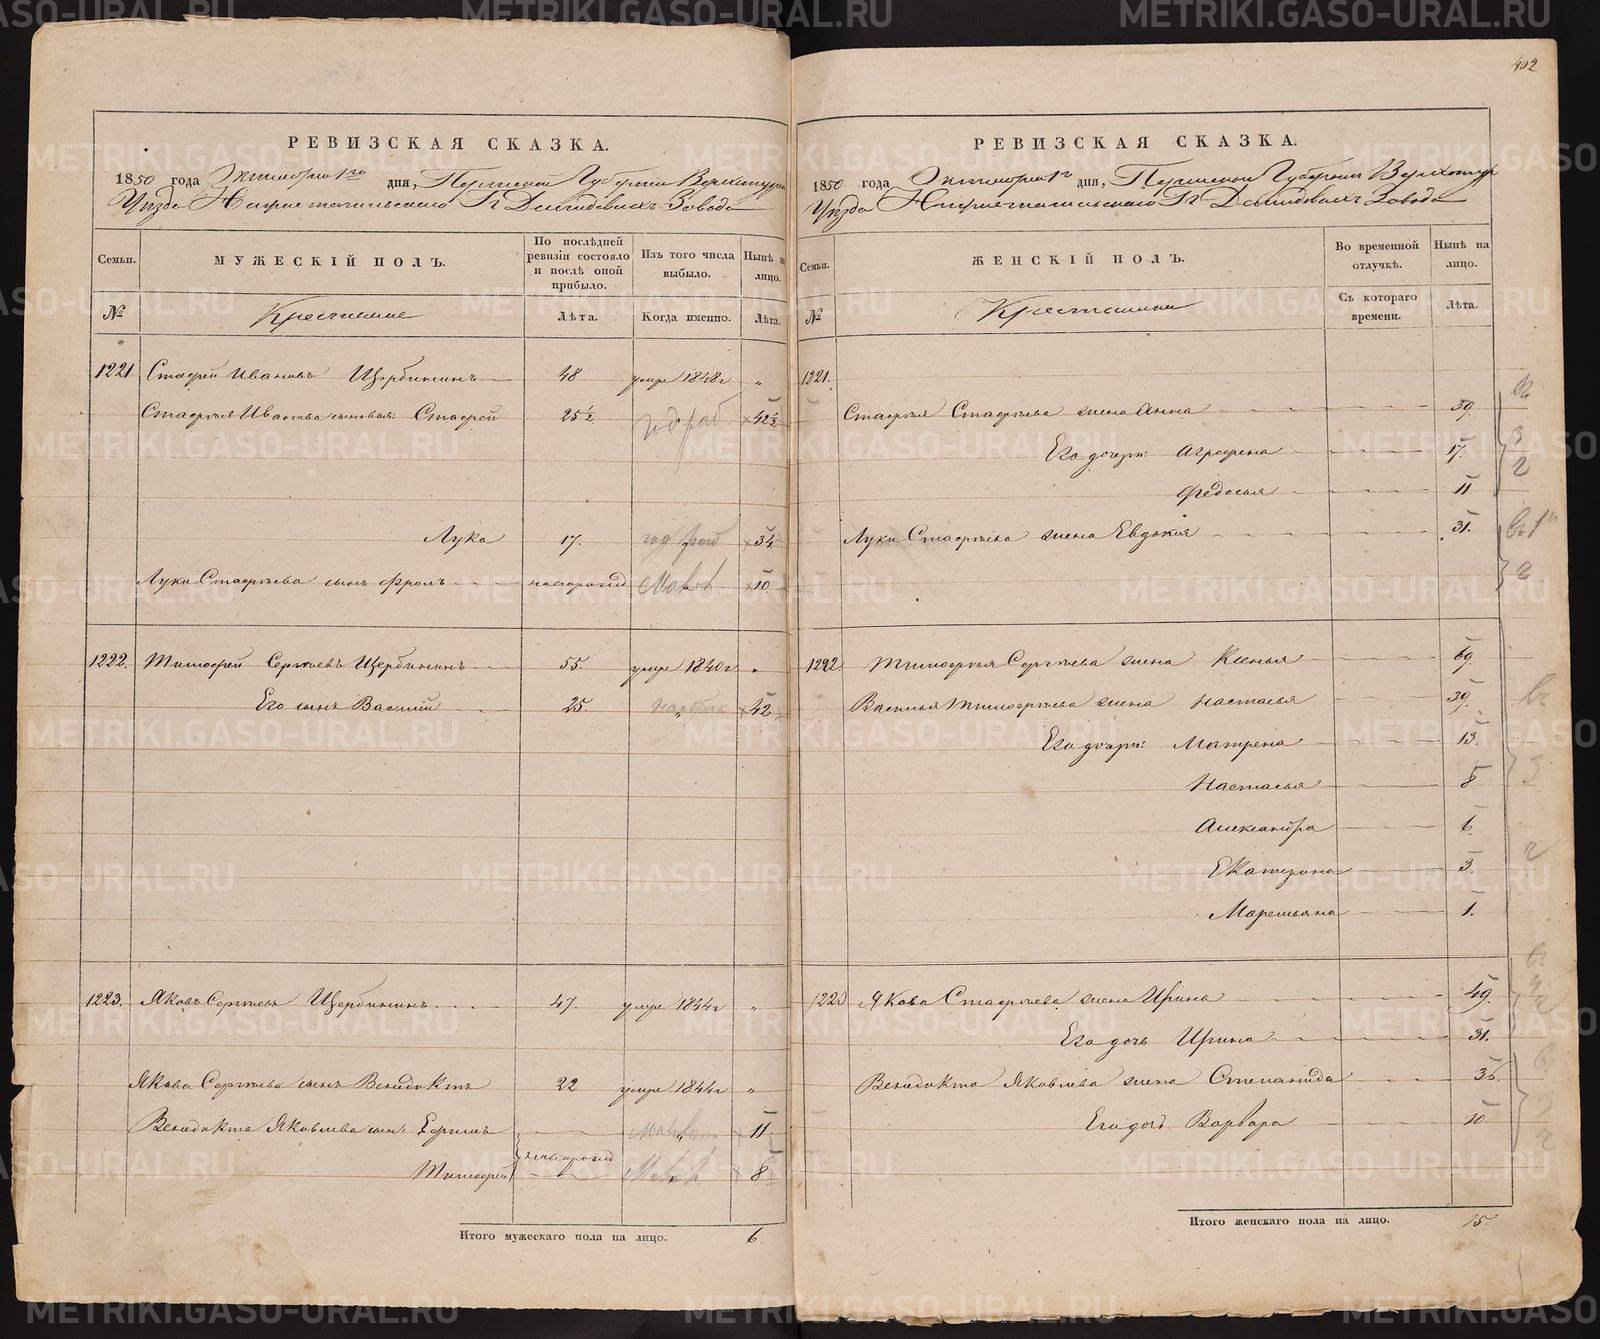 METRIKI.GASO-URAL.RU
402
РЕВИЗСКАЯ СКАЗКА.
1850 года Октября 1го дня, Пермской Губернии Верхотурска
Уѣзда Нижнетагильскаго Гг Демидовыхъ Завода
Семьи.
МУЖЕСКІЙ ПОЛЪ.
По послѣдней ревизіи состояло и послѣ оной прибыло.
Изъ того числа выбыло.
Нынѣ на лицо.
№
Крестьяне
Лѣта.
Когда именно.
Лѣта.
1221 Стафей Ивановъ Щербининъ 48 умре 1848г „
Стафея Иванова сыновья: Стафей 25½ × 42½
Лука 17. × 34
Луки Стафеева сынъ Фролъ новорожд × 10
1222. Тимофей Сергѣевъ Щербининъ 55 умре 1840г „
Его сынъ Василій 25. × 42
1223. Яковъ Сергѣевъ Щербининъ 47. умре 1844г „
Якова Сергѣева сынъ Венедиктъ 22 умре 1844г „
Венедикта Яковлева сын: Ефимъ 11
новорожд
Тимофей × 8
Итого мужескаго пола на лицо. 6.
РЕВИЗСКАЯ СКАЗКА.
1850 года Октября 1го дня, Пермской Губерніи Верхотур
Уѣзда Нижнетагильскаго Гг Демидовыхъ Завода
Семьи.
ЖЕНСКІЙ ПОЛЪ.
Во временной отлучкѣ.
Нынѣ на лицо.
№
Крестьянки
Съ котораго времени.
Лѣта.
1221.
Стафея Стафеева жена Анна 39.
Его дочери: Агрофена 17.
Федосья 11
Луки Стафеева жена Евдокия 31.
1222 Тимофея Сергѣева жена Ксенья 69.
Василья Тимофеева жена Настасья 39.
Его дочери: Матрена 13.
Настасья 8
Александра 6
Екатерина 3.
Маремьяна 1.
1223 Якова Стафеева жена Ирина 49.
Его дочь Ирина 31.
Венедикта Яковлева жена Степанида 35
Его дочь Варвара 10
Итого женскаго пола на лицо. 15.